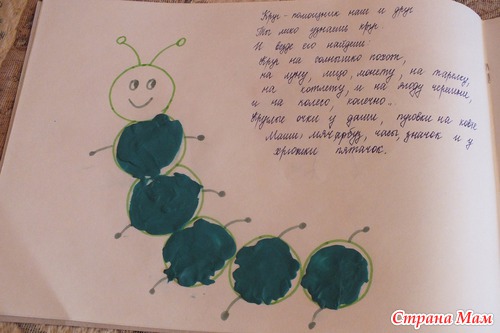 Круг - помощник наш и друг
Ты легко узнаешь круг.
И везде его найдешь:
Круг на солнышко похож,
на луну, лицо, монету, на тарелку,
на котлету, и на ягоду черешни,
и на колесо, конечно...
Круглые очки у даши, пуговки на кофте
Маши, мяч, арбуз, часы, значок и у
хрюшки пятачок.
Страна Мам